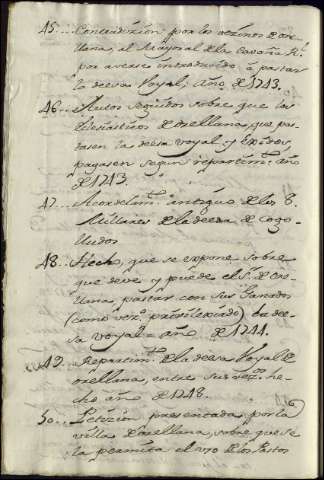 45... Contradizion por los vezinos de ore-
llana, al Mayoral de la Cavaña Rl.
por averse introduzido â pastar
la deesa voyal; año de 1743.
46... Autos seguidos sobre que los
Eclesiasticos de orellana, que pas-
tasen la deesa voyal, y exidos,
pagasen segun repartimto. año
de 1743.
47... antiguo de los 8.
Millares de la deesa de Cogo-
lludos
48... Hecho, que se expone sobre
que deve, y puede el Sr. de ore-
llana, pastar con sus Ganados
(como vezo. privilexiado) la dee-
sa voyal = año de 1744.
49... Repartimto. de la deesa voyal de
orellana, entre sus vezos. he-
cho año de 1748.
50... Petizion presentada por la
villa de orellana, sobre que se
la permita el uso de los Pastos